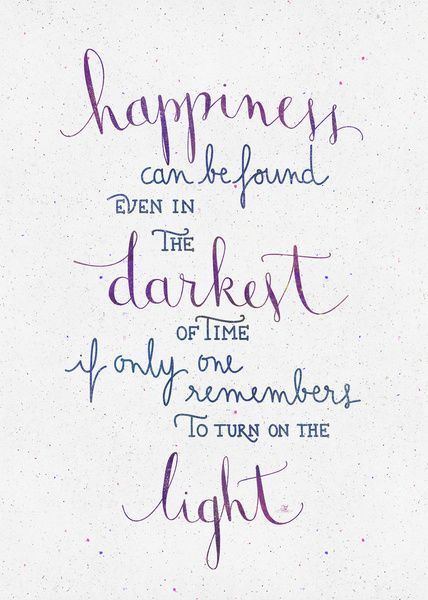 happiness
can be found
EVEN IN
THE
darkest
OF TIME
if only one
remembers
TO TURN ON THE
light